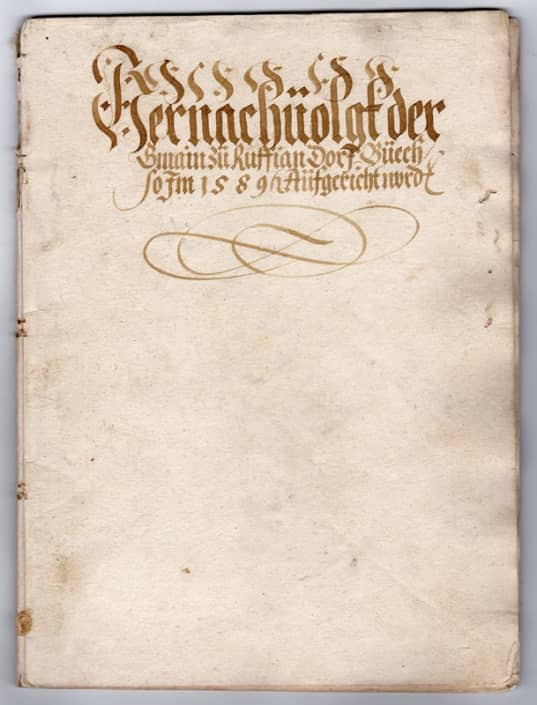 Hernachüolgt der
Gmain zu Ruffian Dorf Büech
so Jm 1589 Aufgericht word